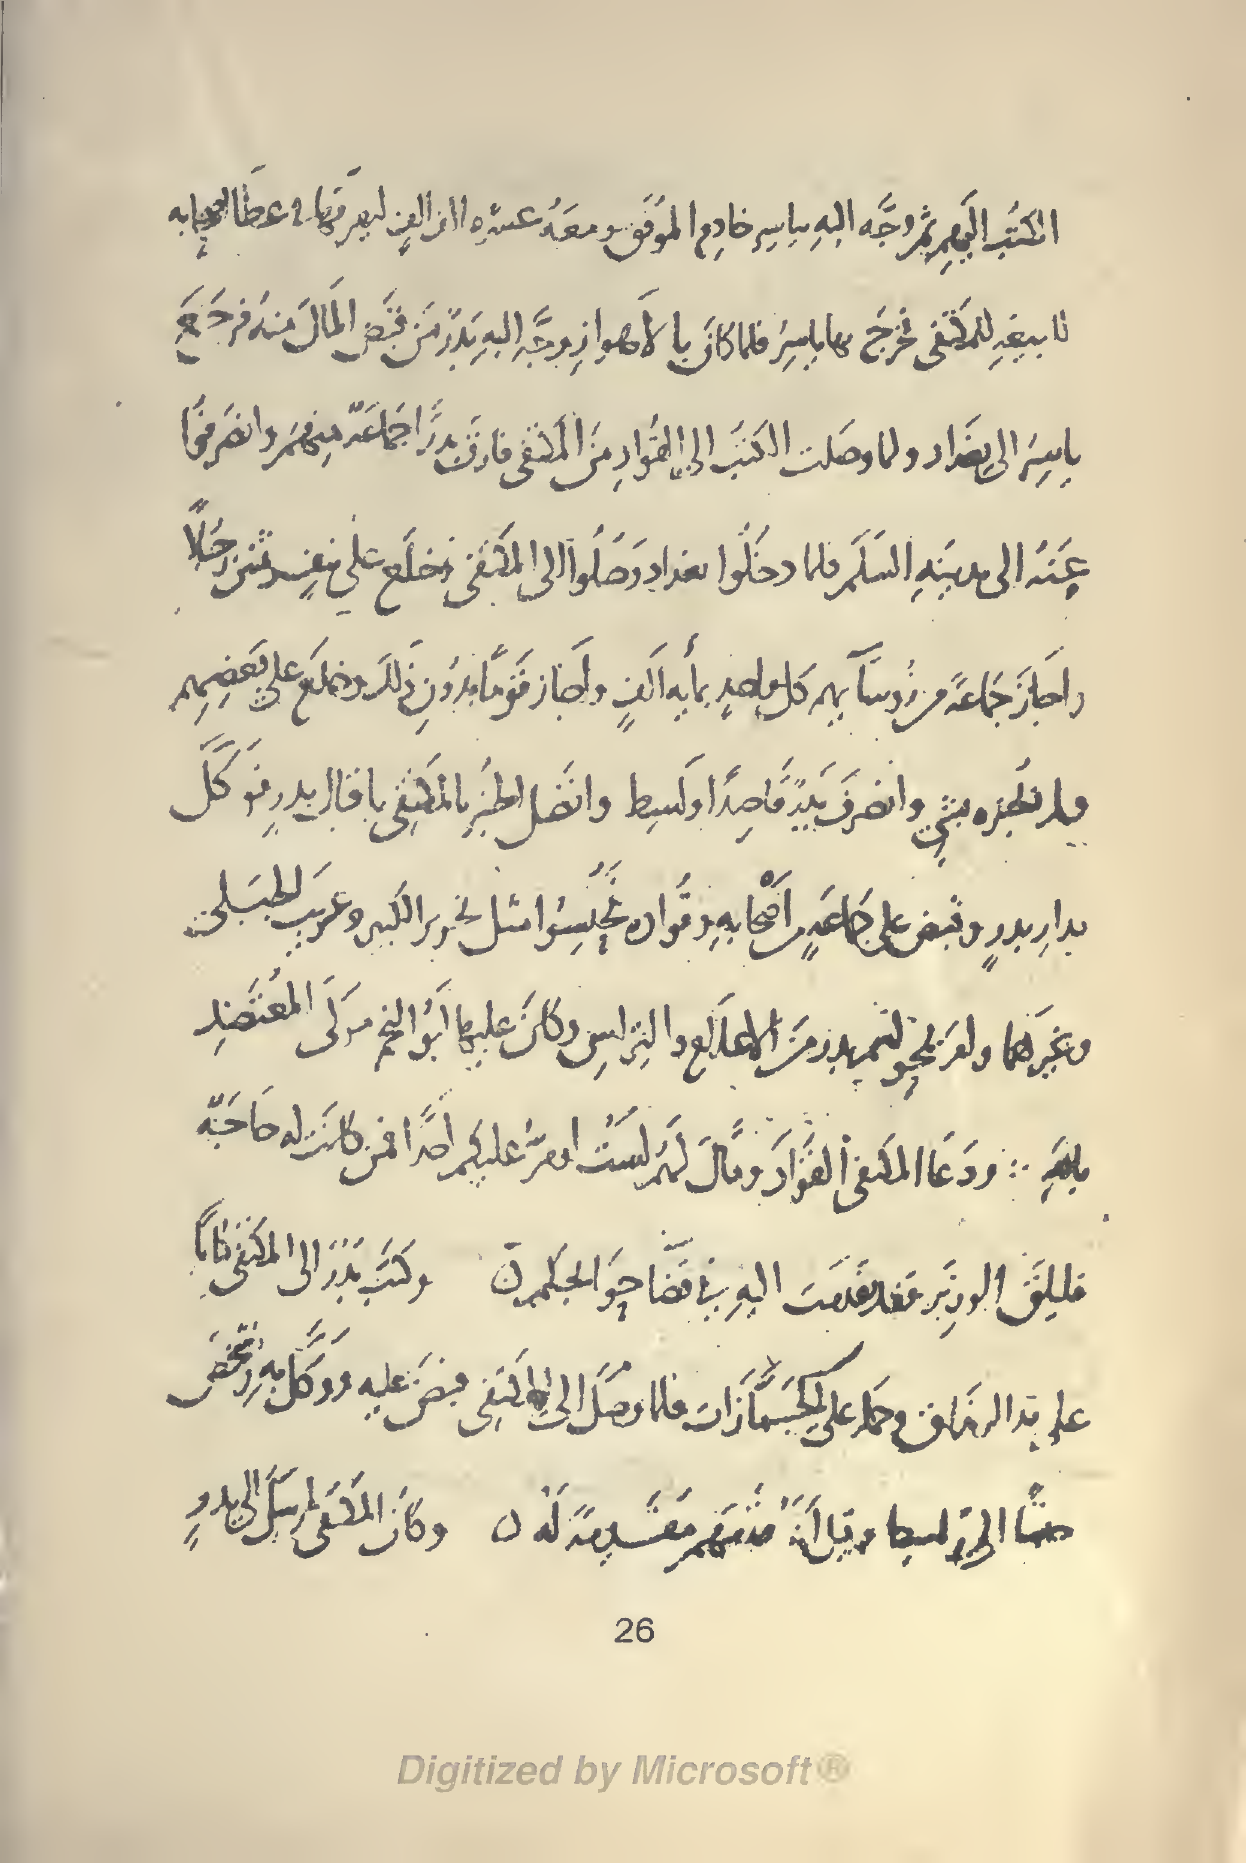 الكتب اليهم ثم وجَّه اليهِ بياسرٍ خادِم الموُفَّق ومعَهُ عشره الاف الف ليفرّقها في عطا اصحابه
لبيعَهِ للمكتفى فخرجَ بها ياسِرُ فلما كانَ بالاَهواز وجَّه اليه بَدرٌ مَن قبَضَ المالَ منهُ فرجَعَ
ياسِرُ الى بغداد ولما وصَلت الكتبُ الى القُوَّادِ مِنَ المكتفى فارقَ بدرًا جَماعَةٌ منهم وانصرفوا
عَنهُ الى مدينهِ السَلَم فلما دخَلُوا بغداد وصَلُوا الى المكتفى فخلَع على نيفٍ وثمنين رجُلاً
واجَازَ جَماعَةً من رُوسَآيهم كل واحدٍ بمأيه الفٍ واجَاز قوَمًا بدُونِ ذلك وخلَع على بَعضِهِم
ولم يُجِزه بشيٍ وانصرفَ بَدرٌ قاصِدًا واسِط واتصَل الخبرُ بالمكتفى باقبال بدرٍ فوَكَّل
بدارِ بدرٍ وقبض على جماعَهٍ من اصْحابهِ وقُوَّاده فحُبِسُوا مثل نحرير الكبير وعَريب الجبَلى
وغيرهما ولم بدر منَ الاعلام والتِراسِ وكانَ عليها ابُو النجم مَولَى المعُتَضِدِ
باللهِ ∴ ودعَا المكتفى القوَّادَ وقالَ لهَم لَستُ اومرُّ عليكم احَدًا فمن كانَت له حَاجَةٌ
فليلقَ الوزيَر فقد تقدمت اليهِ في قضَآ حوَايجكم ن وكتَبَ بَدرٌ الى المكتفى كتابًا
على يد وحمله على الجمَّازَات فلما وصَل الى المكتفى قبضَ عليه ووكَّل به
الى وقيل انهُ لَهُ ن وكانَ المكتفى ارسَل الى بدرٍ
26
Digitized by Microsoft®